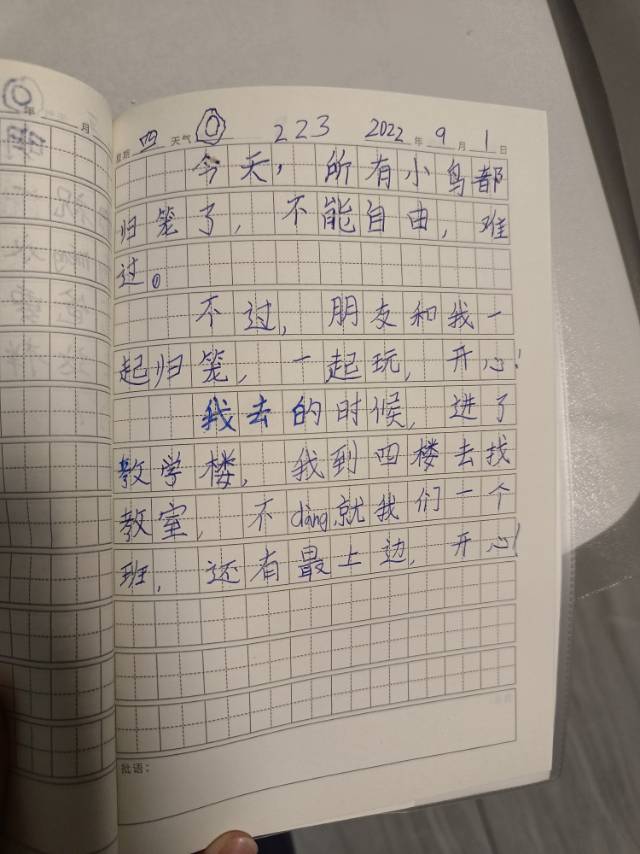 星期 四 天气 223 2022 年 9 月 1 日
今天，所有小鸟都
归笼了，不能自由，难
过。
不过，朋友和我一
起归笼，一起玩，开心！
我去的时候，进了
教学楼，我到四楼去找
教室，不dàng就我们一个
班，还有最上边，开心！
批语：
年 月